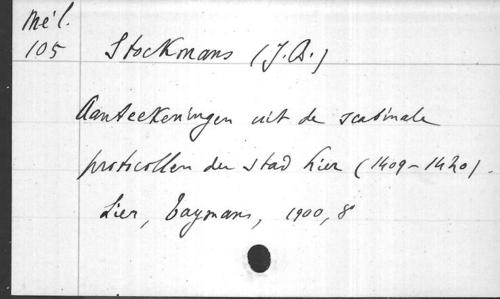 Mél.
105
Stockmans (J.B.)
Aanteekeningen uit de scabinale
protocollen der stad Lier (1409-1420).
Lier, Taymans, 1900, 8°